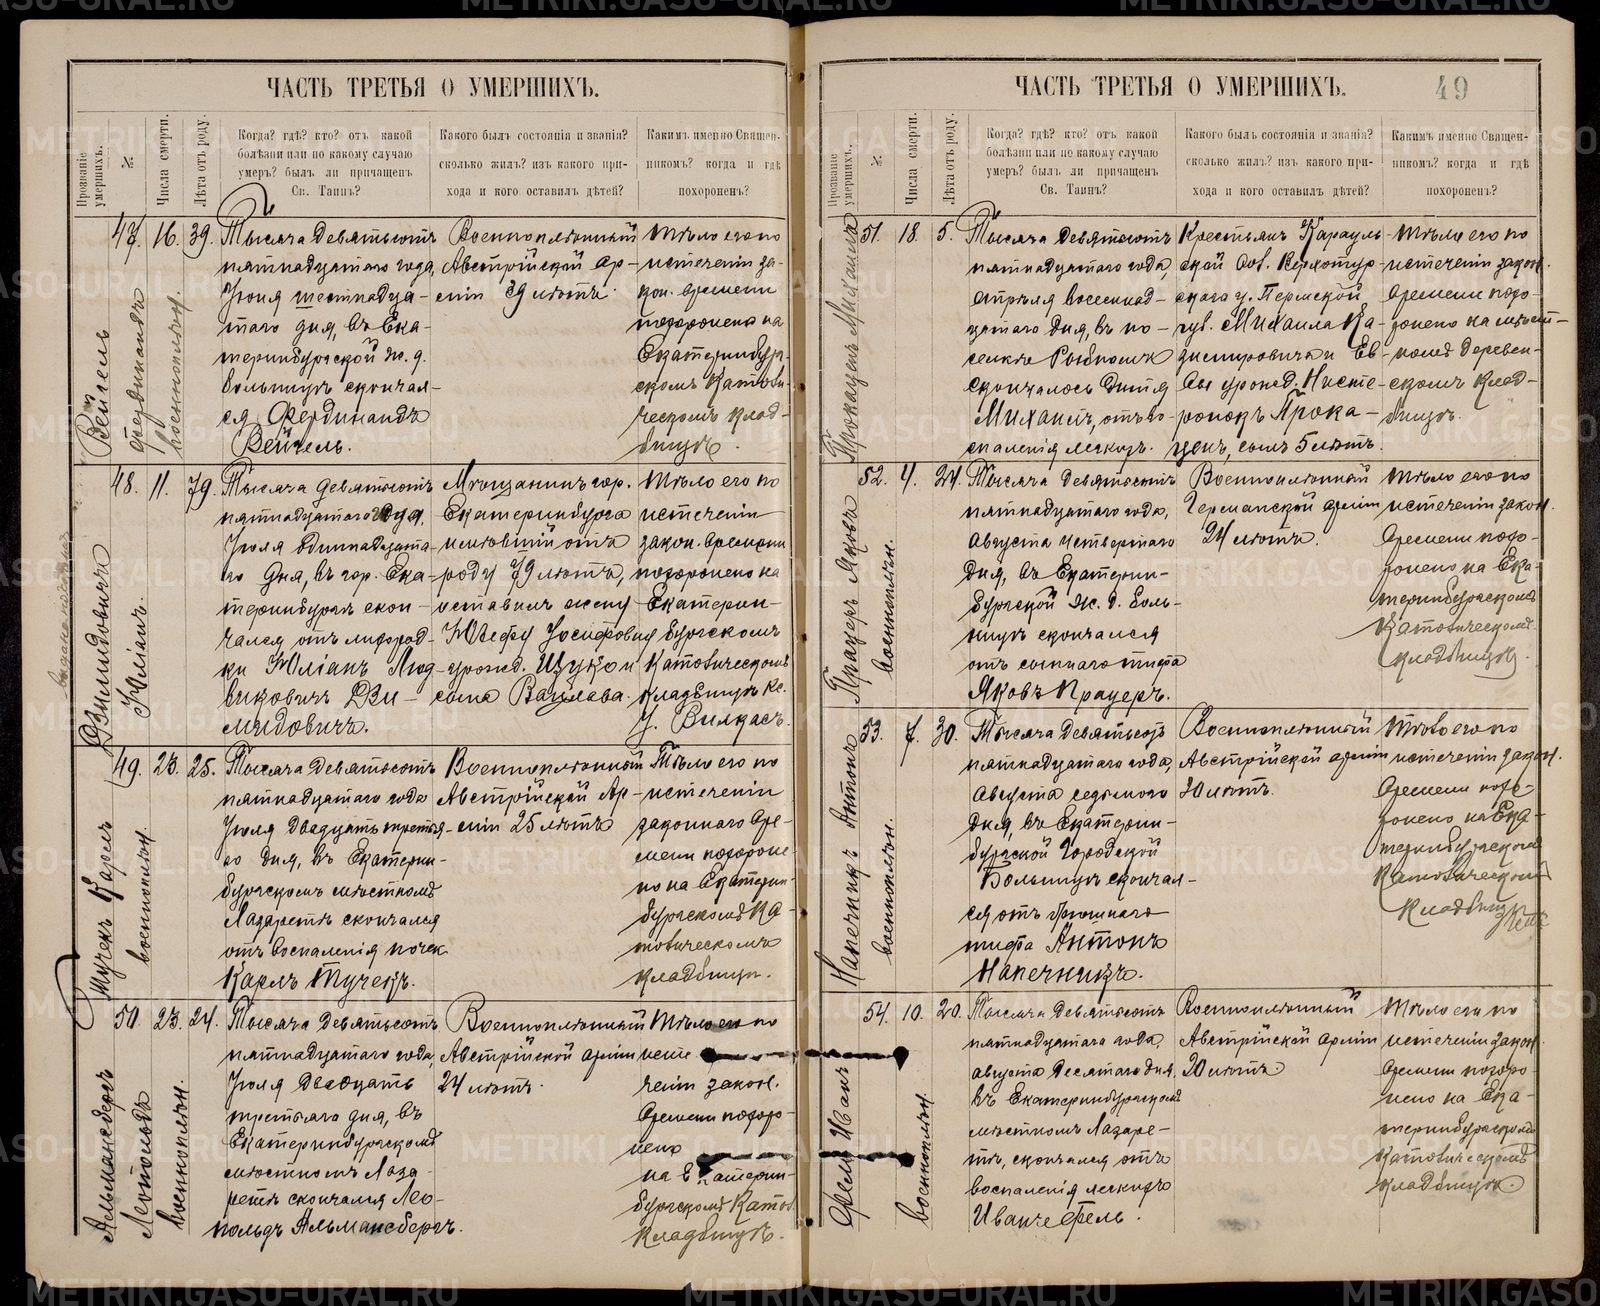 ЧАСТЬ ТРЕТЬЯ О УМЕРШИХЪ.
Прозваніе умершихъ.
№
Числа смерти.
Лѣта отъ роду.
Когда? гдѣ? кто? отъ какой
болѣзни или по какому случаю
умеръ? былъ ли причащенъ
Св. Таинъ?
Какого былъ состоянія и званія?
сколько жилъ? изъ какого при-
хода и кого оставилъ дѣтей?
Какимъ именно Священ-
никомъ? когда и гдѣ
похороненъ?
Вейгель
Фердинандъ
военноплѣн.
47. 16. 39.
Тысяча девятьсотъ
пятнадцатаго года,
Іюня шестнадца-
таго дня, въ Ека-
теринбургской ж. д.
больницѣ скончал-
ся Фердинандъ
Вейгель.
Военноплѣнный
Австрійской ар-
міи 39 лѣтъ.
Тѣло его по
истеченіи за-
кон. времени
похоронено на
Екатеринбур-
скомъ Католи-
ческомъ клад-
бищѣ.
Дзилидовичъ
Юліанъ.
48. 11. 79.
Тысяча девятьсотъ
пятнадцатаго года,
Іюля одиннадцата-
го дня, въ гор. Ека-
теринбургѣ скон-
чался отъ лихорад-
ки Юліанъ Люд-
виковичъ Дзи-
лидовичъ.
Мѣщанинъ гор.
Екатеринбурга
имѣвшій отъ
роду 79 лѣтъ,
оставилъ жену
Юзефу Іосифовну
урожд. и
сына Вацлава.
Тѣло его по
истеченіи
закон. времени
похоронено на
Екатерин-
бургскомъ
Католическомъ
кладбищѣ Кс.
Ю. Вилкасъ.
Тучекъ Карлъ
военноплѣн.
49. 23. 25.
Тысяча девятьсотъ
пятнадцатаго года
Іюля двадцать третья-
го дня, въ Екатерин-
бургскомъ мѣстномъ
Лазаретѣ скончался
отъ воспаленія почек
Карлъ Тучекъ.
Военноплѣнный
Австрійской Ар-
міи 25 лѣтъ
Тѣло его по
истеченіи
законнаго вре-
мени похороне-
но на Екатерин-
бургскомъ Ка-
толическомъ
кладбищѣ.
Альмансбергъ
Леопольдъ
военноплѣн.
50. 23. 24.
Тысяча девятьсотъ
пятнадцатаго года,
Іюля двадцать
третьяго дня, въ
Екатеринбургскомъ
мѣстномъ Лаза-
ретѣ скончался Лео-
польдъ Альмансбергъ.
Военноплѣнный
Австрійской арміи
24 лѣтъ.
Тѣло его по
исте
ченіи закон.
времени похоро-
нено
на Екатерин-
бургскомъ Катол.
кладбищѣ.
ЧАСТЬ ТРЕТЬЯ О УМЕРШИХЪ.
49
Прозваніе умершихъ.
№
Числа смерти.
Лѣта отъ роду.
Когда? гдѣ? кто? отъ какой
болѣзни или по какому случаю
умеръ? былъ ли причащенъ
Св. Таинъ?
Какого былъ состоянія и званія?
сколько жилъ? изъ какого при-
хода и кого оставилъ дѣтей?
Какимъ именно Священ-
никомъ? когда и гдѣ
похороненъ?
Прокацень Михаилъ
51. 18. 5.
Тысяча девятьсотъ
пятнадцатаго года,
апрѣля восемнад-
цатаго дня, въ по-
селкѣ
скончалось дитя
Михаилъ, отъ во-
спаленія легкихъ.
Крестьянъ Карауль-
ской вол. Верхотур-
скаго у. Пермской
губ. Михаила Ка-
зимировича и Ев-
вы урожд.
Прока-
цень, сынъ 5 лѣтъ.
Тѣло его по
истеченіи закон.
времени похо-
ронено на мѣст-
номъ деревен-
скомъ клад-
бищѣ.
Працеръ Яковъ
военноплѣн.
52. 4. 24.
Тысяча девятьсотъ
пятнадцатаго года,
Августа четвертаго
дня, въ Екатерин-
бургской ж. д. боль-
ницѣ скончался
отъ сыпнаго тифа
Яковъ Працеръ.
Военноплѣнный
Германской арміи
24 лѣтъ.
Тѣло его по
истеченіи закон.
времени похо-
ронено на Ека-
теринбургскомъ
Католическомъ
кладбищѣ.
Напечникъ Антонъ
военноплѣн.
53. 7. 30.
Тысяча девятьсотъ
пятнадцатаго года,
Августа седьмого
дня, въ Екатерин-
бургской Городской
Больницѣ скончал-
ся отъ брюшнаго
тифа Антонъ
Напечникъ.
Военноплѣнный
Австрійской арміи
30 лѣтъ.
Тѣло его по
истеченіи закон.
времени похо-
ронено на Ека-
теринбургском
Католическомъ
кладбищѣ
Фель Иванъ
военноплѣн.
54. 10. 20.
Тысяча девятьсотъ
пятнадцатаго года,
августа десятаго дня,
въ Екатеринбургскомъ
мѣстномъ Лазаре-
тѣ, скончался отъ
воспаленія легкихъ
Иванъ Фель.
Военноплѣнный
Австрійской арміи
20 лѣтъ
Тѣло его по
истеченіи закон.
времени похоро-
нено на Ека-
теринбургскомъ
Католическомъ
кладбищѣ
METRIKI.GASO-URAL.RU